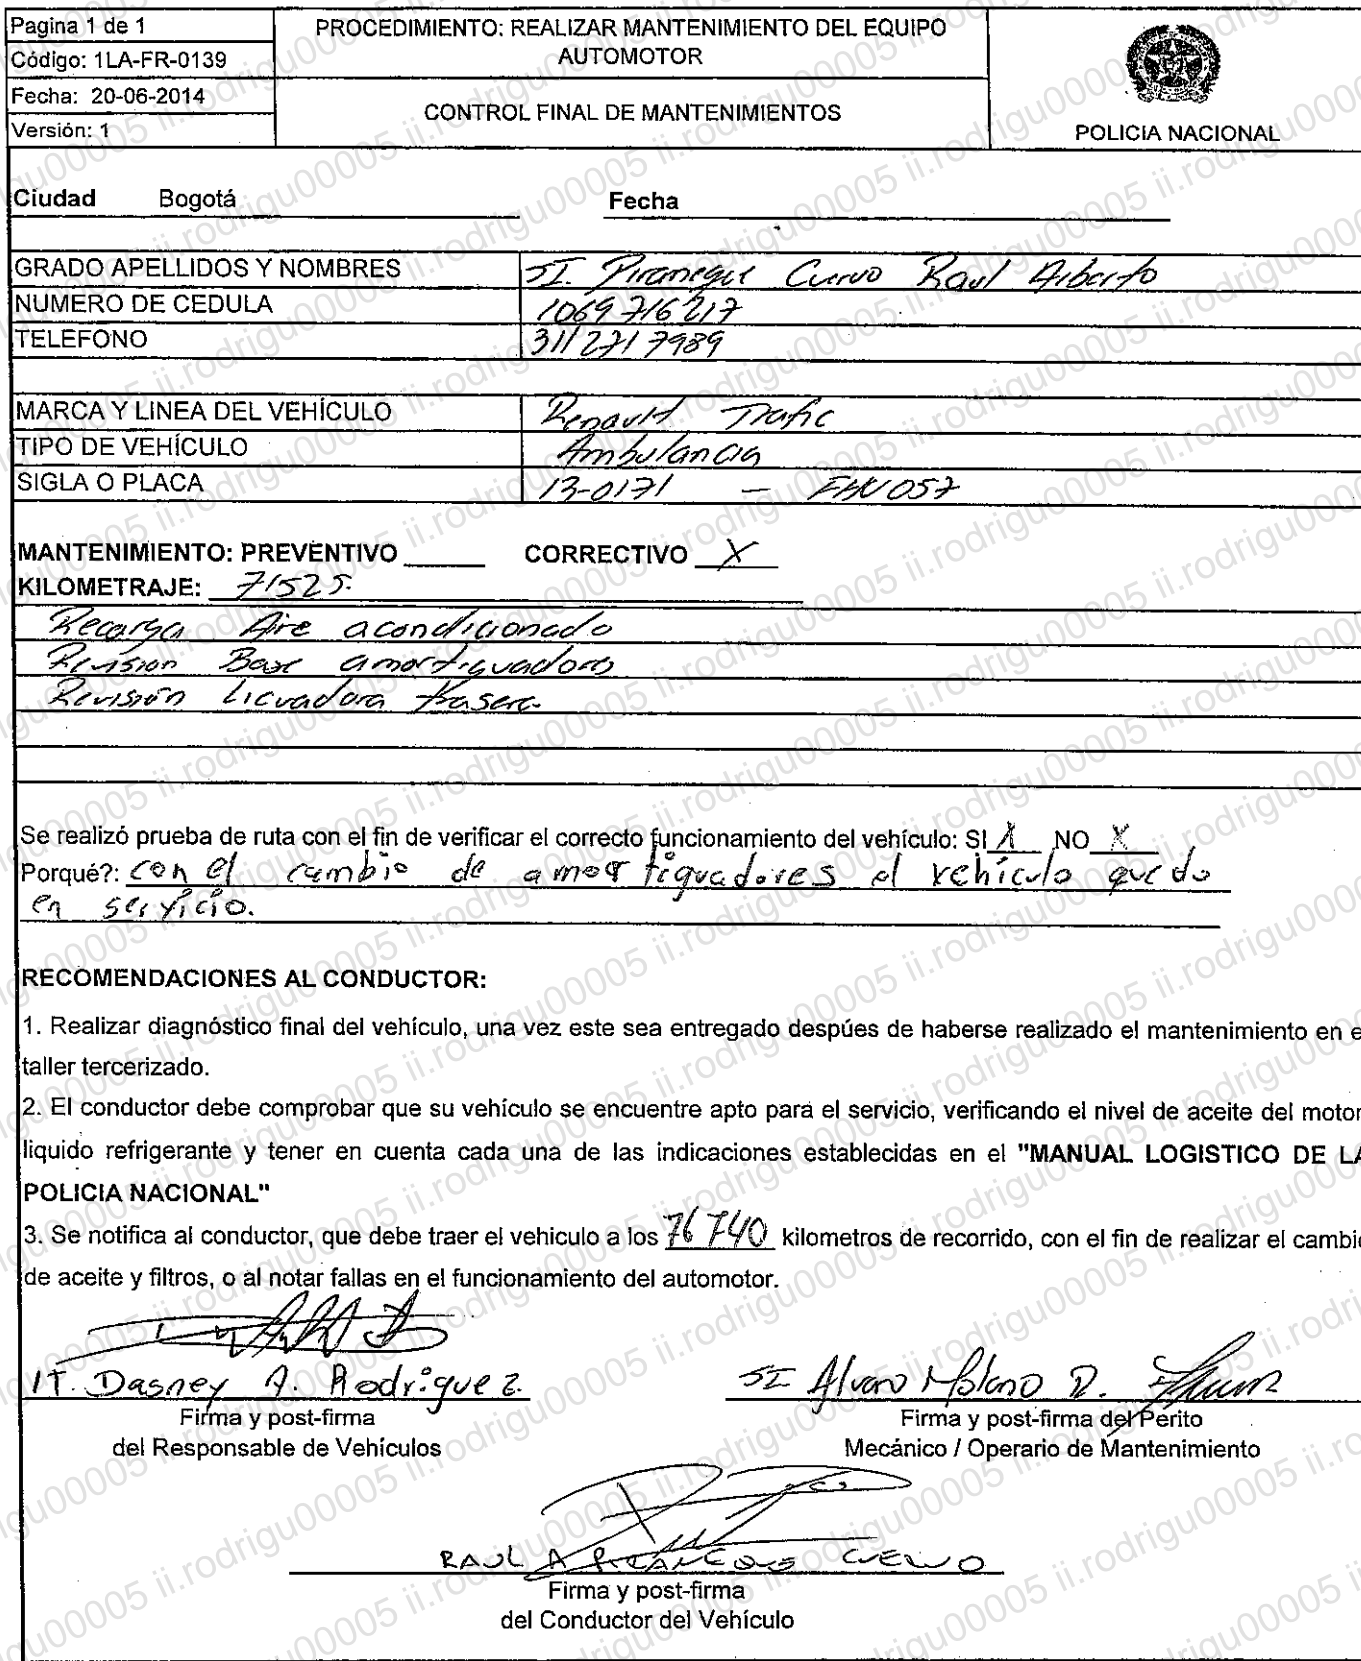 Pagina 1 de 1
Código: 1LA-FR-0139
Fecha: 20-06-2014
Versión: 1
PROCEDIMIENTO: REALIZAR MANTENIMIENTO DEL EQUIPO
AUTOMOTOR
CONTROL FINAL DE MANTENIMIENTOS
POLICIA NACIONAL
Ciudad Bogotá Fecha
GRADO APELLIDOS Y NOMBRES SI. Piraneque Cuervo Raul Alberto
NUMERO DE CEDULA 1069716217
TELEFONO 3112717989
MARCA Y LINEA DEL VEHÍCULO Renault Trafic
TIPO DE VEHÍCULO Ambulancia
SIGLA O PLACA 13-0171 - 057
MANTENIMIENTO: PREVENTIVO CORRECTIVO X
KILOMETRAJE: 71525.
Recarga Aire acondicionado
Revision Base amortiguadores
Revisión Licuadora trasera.
Se realizó prueba de ruta con el fin de verificar el correcto funcionamiento del vehículo: SI X NO X
Porqué?: con el cambio de amortiguadores el vehículo quedo
en servicio.
RECOMENDACIONES AL CONDUCTOR:
1. Realizar diagnóstico final del vehículo, una vez este sea entregado despúes de haberse realizado el mantenimiento en e
taller tercerizado.
2. El conductor debe comprobar que su vehículo se encuentre apto para el servicio, verificando el nivel de aceite del motor
liquido refrigerante y tener en cuenta cada una de las indicaciones establecidas en el "MANUAL LOGISTICO DE LA
POLICIA NACIONAL"
3. Se notifica al conductor, que debe traer el vehiculo a los 76740 kilometros de recorrido, con el fin de realizar el cambi
de aceite y filtros, o al notar fallas en el funcionamiento del automotor.
IT. Dasney A. Rodriguez.
Firma y post-firma
del Responsable de Vehículos
SI Alvaro Molano D.
Firma y post-firma del Perito
Mecánico / Operario de Mantenimiento
RAUL A PIRANEQUE CUERVO
Firma y post-firma
del Conductor del Vehículo
ii.rodrigu00005